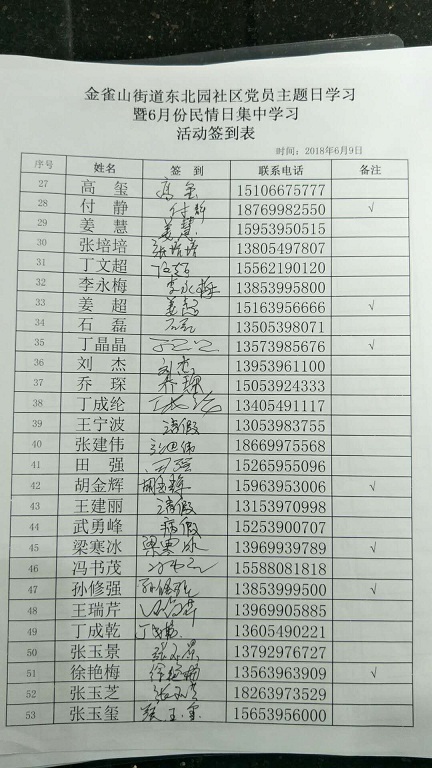 金雀山街道东北园社区党员主题日学习
暨6月份民情日集中学习
活动签到表
时间：2018年6月9日
序号 姓名 签 到 联系电话 备注
27 高 玺 高 玺 15106675777
28 付 静 付静 18769982550 √
29 姜 慧 姜慧 15953950515
30 张培培 张培培 13805497807
31 丁文超 15562190120
32 李永梅 李永梅 13853995800
33 姜 超 姜超 15163956666 √
34 石 磊 石磊 13505398071
35 丁晶晶 13573985676 √
36 刘 杰 刘杰 13953961100
37 乔 琛 乔琛 15053924333
38 丁成纶 丁成纶 13405491117
39 王宁波 请假 13053983755
40 张建伟 张建伟 18669975568
41 田 强 田强 15265955096
42 胡金辉 胡金辉 15963953006 √
43 王建丽 请假 13153970998
44 武勇峰 病假 15253900707
45 梁寒冰 梁寒冰 13969939789 √
46 冯书茂 15588081818
47 孙修强 孙修强 13853999500 √
48 王瑞芹 13969905885
49 丁成乾 丁成乾 13605490221
50 张玉景 张玉景 13792976727
51 徐艳梅 徐艳梅 13563963909 √
52 张玉芝 张玉芝 18263973529
53 张玉玺 张玉玺 15653956000